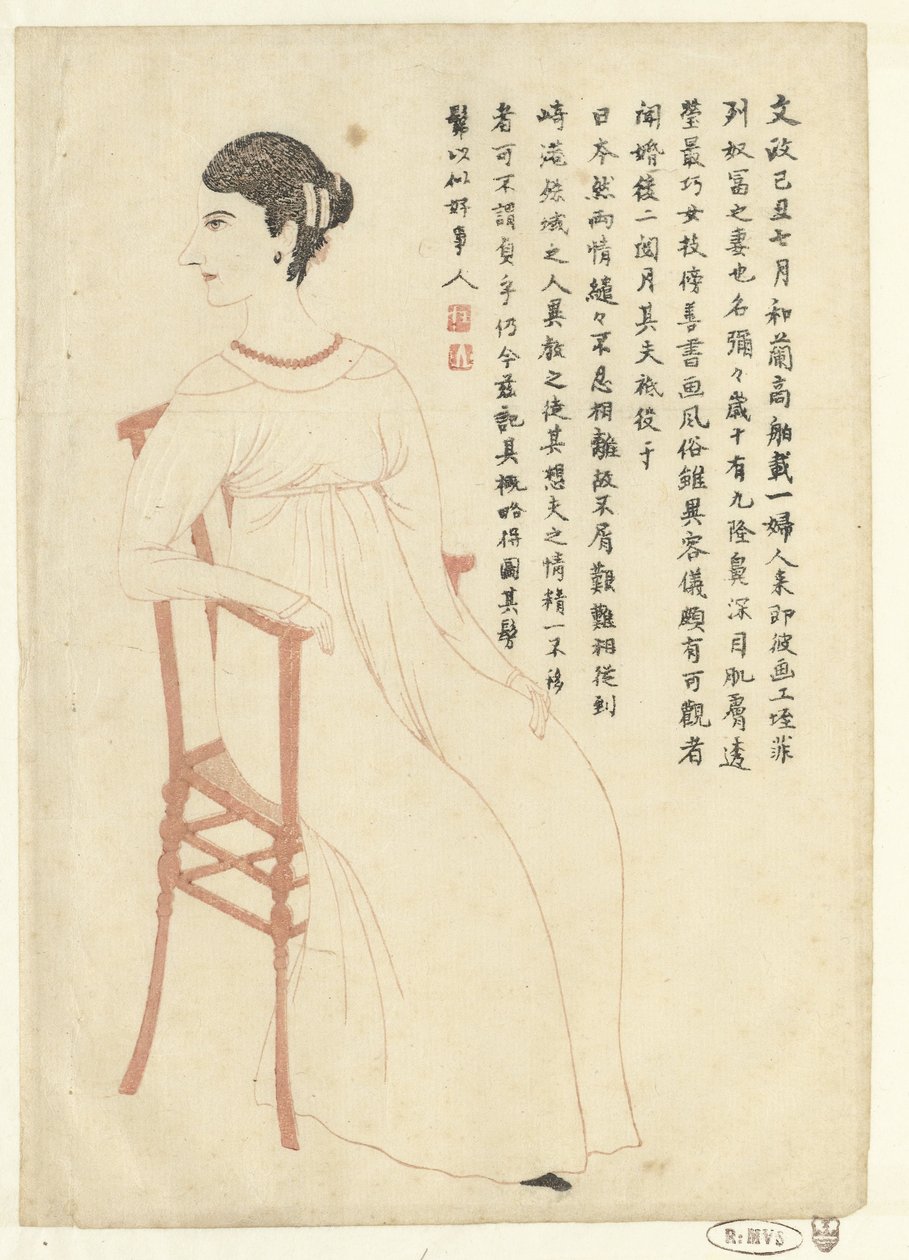 文政己丑七月和蘭高舶載一婦人来即彼画工垤菲
列奴冨之妻也名彌々歳十有九隆鼻深目肌膚透
瑩最巧女技傍善書画風俗雖異容儀頗有可觀者
聞婚後二閲月其夫祗役于
日本然両情繾々不忍相離故不屑艱難相従到
崎港殊域之人異教之徒其想夫之情精一不移
者可不謂貞乎仍今茲記其概略得圖其髣
髴以似好事人
R:MVS